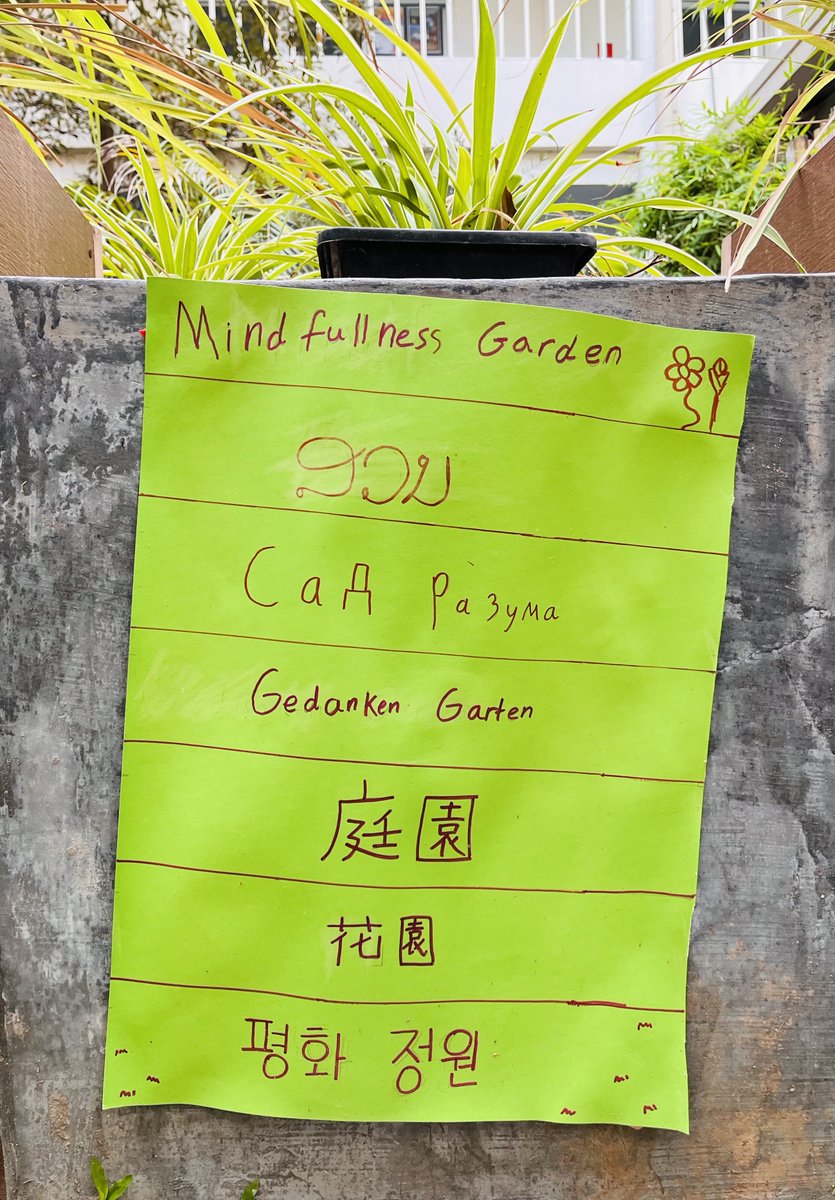 Mindfullness Garden
ສວນ
Сад разума
Gedanken Garten
庭園
花園
평화 정원